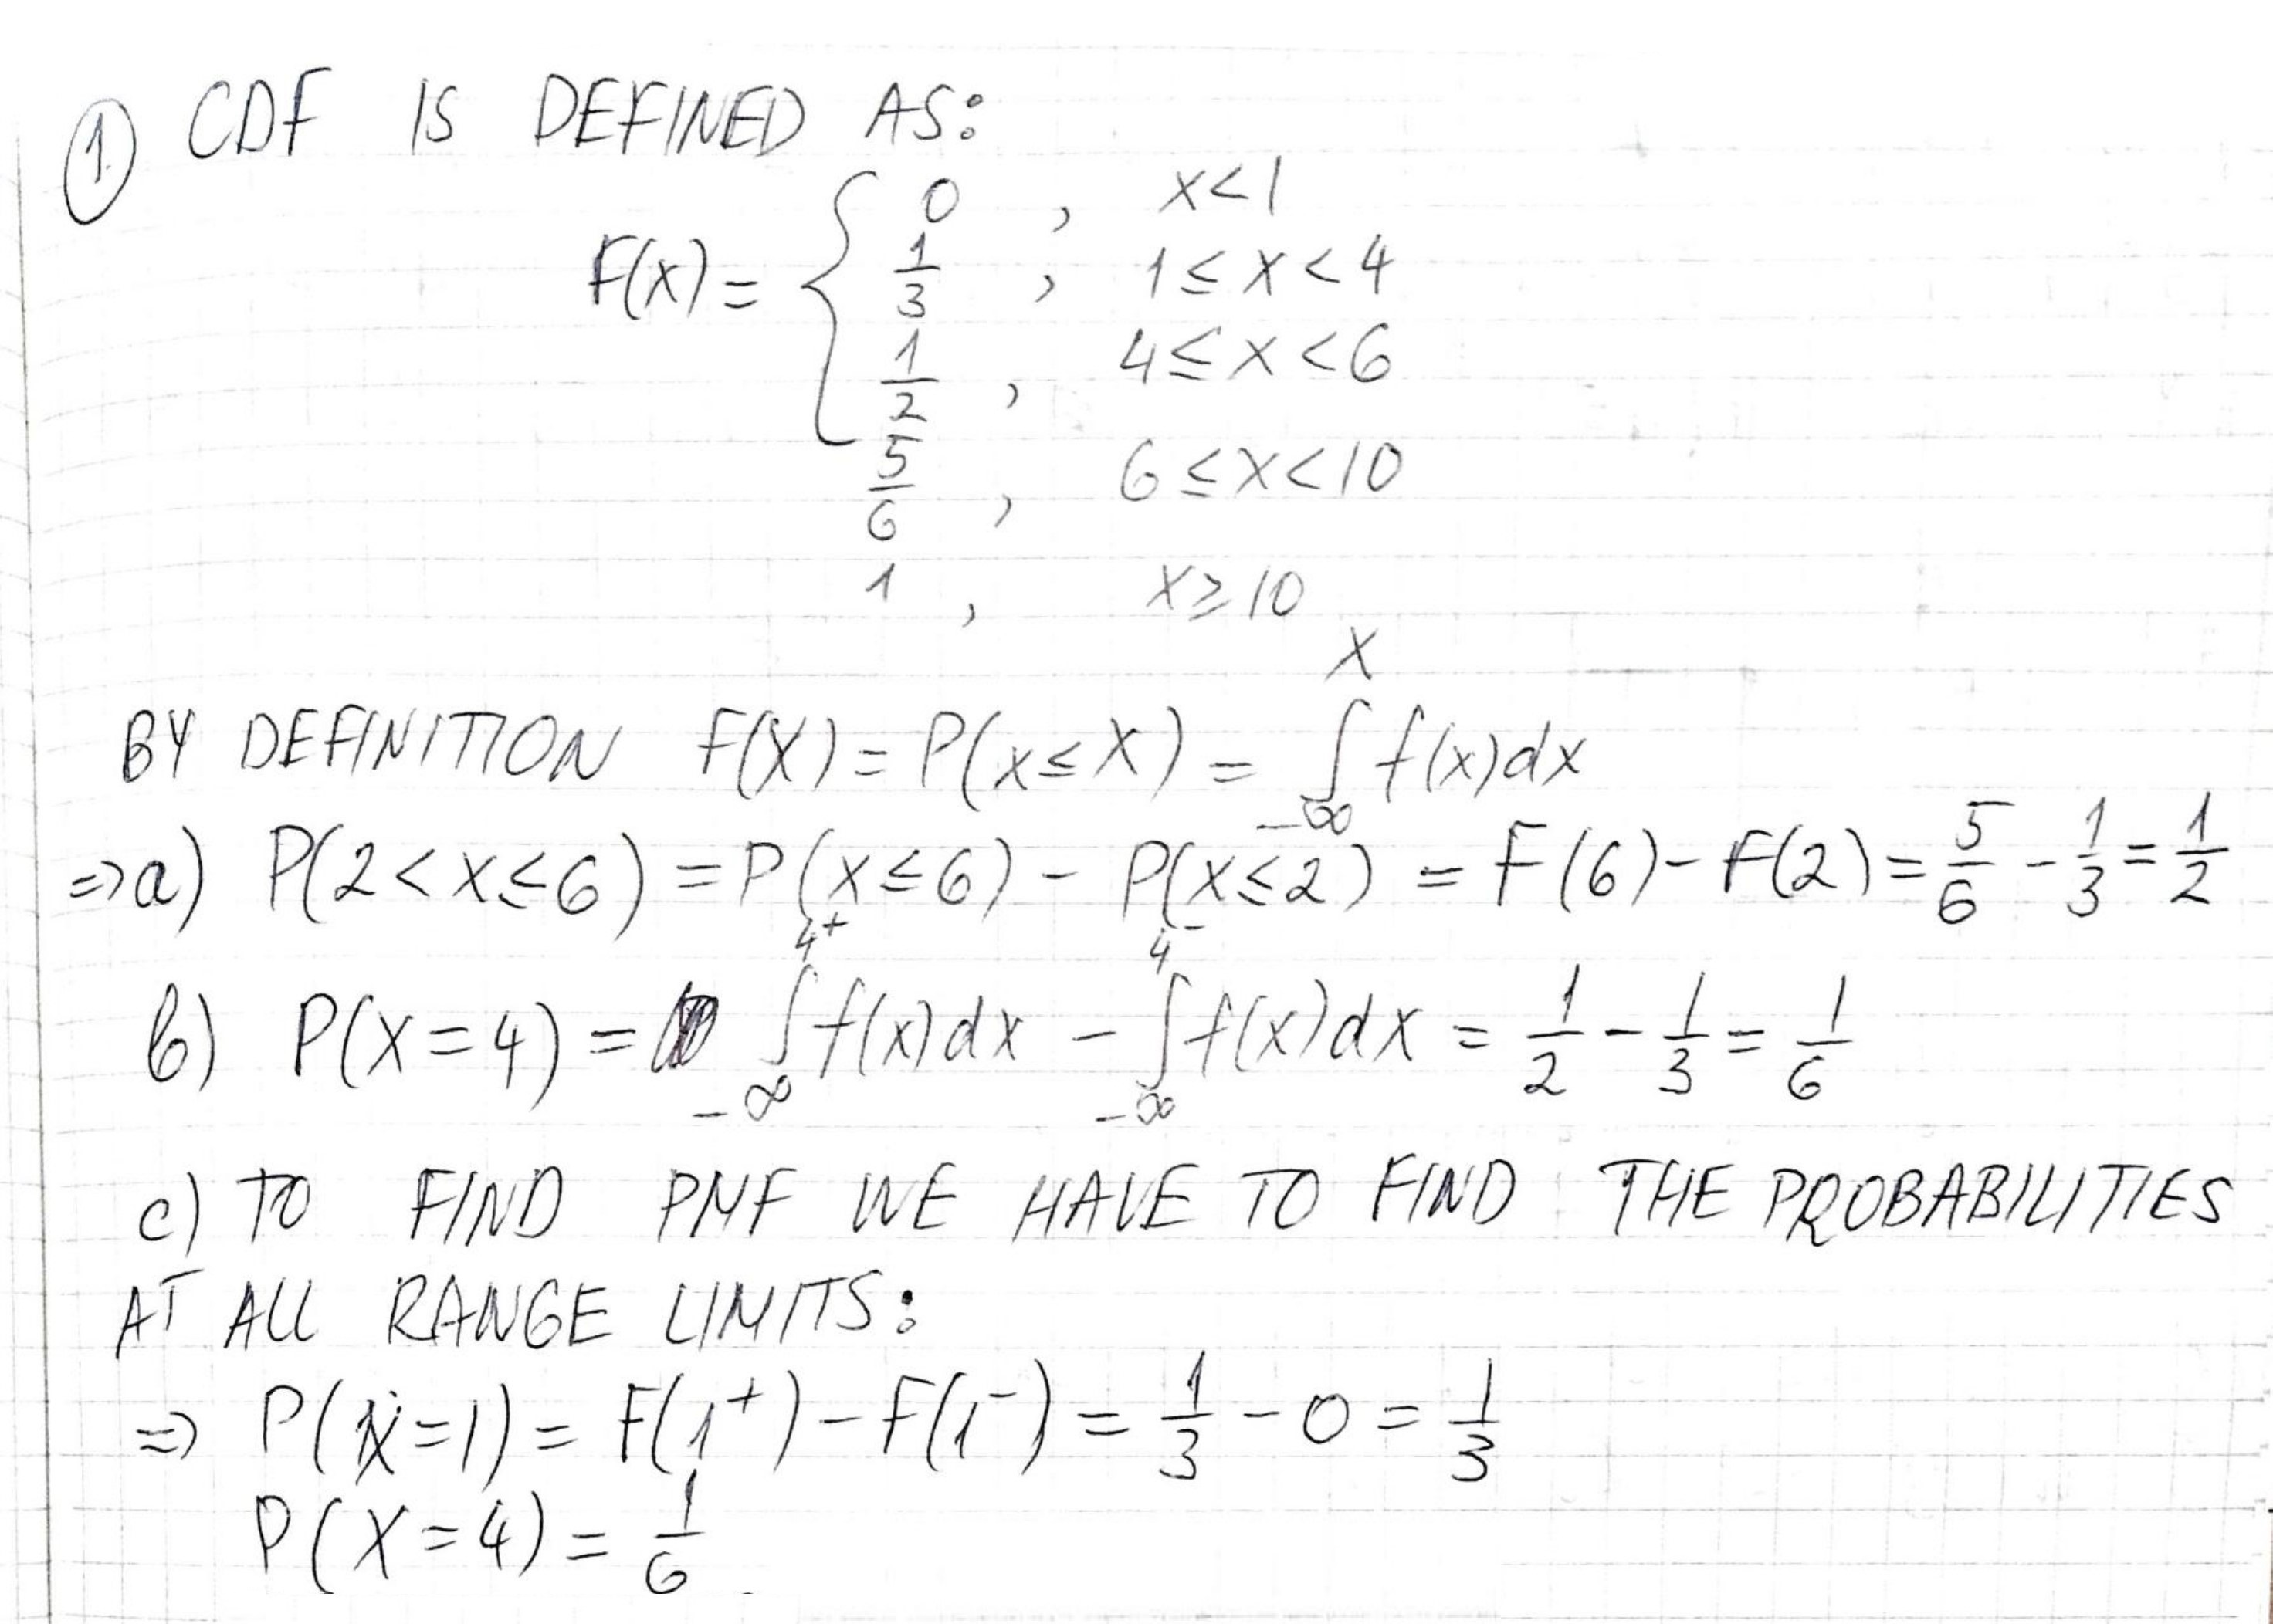 1. CDF IS DEFINED AS:
0 , x<1
F(x) = { 1/3 , 1≤x<4
1/2 , 4≤x<6
5/6 , 6≤x<10
1 , x≥10
BY DEFINITION F(X) = P(x≤X) = ∫_{-∞}^{X} f(x)dx
⇒a) P(2<x≤6) = P(x≤6) - P(x≤2) = F(6) - F(2) = 5/6 - 1/3 = 1/2
b) P(X=4) = ∫_{-∞}^{4⁺} f(x)dx - ∫_{-∞}^{4⁻} f(x)dx = 1/2 - 1/3 = 1/6
c) TO FIND PMF WE HAVE TO FIND THE PROBABILITIES
AT ALL RANGE LIMITS:
⇒ P(X=1) = F(1⁺) - F(1⁻) = 1/3 - 0 = 1/3
P(X=4) = 1/6